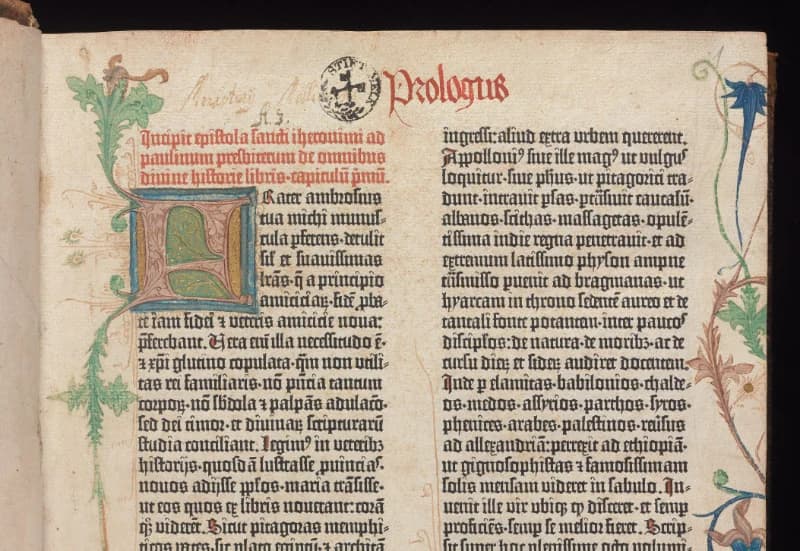 STIFT MELK
Prologus
Incipit epistola sancti iheronimi ad
paulinum presbiterum de omnibus
divine historie libris. capitulū p̄mū.
Frater ambrosius
tua michi munus-
cula ꝑferens. detulit
sil̄ et suavissimas
l̄ras. q̄ a principio
amiciciaꝝ. fidē ꝓba-
te iam fidei ⁊ veteris amicicie nova:
p̄ferebant. Vera enī illa necessitudo ē.
⁊ xp̄i glutino copulata. qm̄ non utili-
tas rei familiaris. nō p̄ncia tantum
corpoꝝ. nō s̄bdola ⁊ palpās adulac̄o.
sed dei timor. et divinaꝝ scripturarū
studia conciliant. Legimꝰ in veteribꝫ
historijs. quosdā lustrasse ꝓuinciaˢ.
novos adijsse ꝓp̄los. maria trāsisse.
ut eos quos ex libris noverant: corā
qꝫ viderēt. Sicut pitagoras memphi-
ticos vates. sic plato egiptū. ⁊ architā
ingressi: aliud extra urbem quererent.
Appolloniꝰ sive ille magꝰ ut vulgꝰ
loquitur. sive ph̄us. ut pitagorici tra-
dunt. intravit ꝑsas. ꝑtrāsivit caucasū.
albanos. scithas. massagetas. opulē-
tissima indie regna penetravit. et ad
extremum latissimo physon ampne
trāsmisso ꝑvenit ad bragmanas. ut
hyarcam in throno sedentē aureo et de
tantali fonte potantem. inter paucoˢ
discip̄los. de natura. de moribꝫ. ac de
cursu dieꝝ et sideꝝ audiret docentem.
Inde ꝑ elamitas. babilonios. chalde-
os. medos. assyrios. parthos. syros.
phenices. arabes. palestinos. reversus
ad allexandriā: perrexit ad ethiopiā.
ut gignosophistas ⁊ famosissimam
solis mensam videret in sabulo. In-
venit ille vir ubiqꝫ qđ disceret. et semꝑ
proficiēs. semꝑ se melior fieret. Scrip-
sit super hoc plenissime octo volumi-